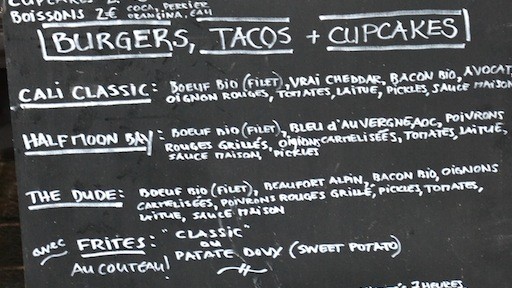 BOISSONS 2€ COCA, PERRIER
ORANGINA, EAU
BURGERS, TACOS + CUPCAKES
CALI CLASSIC: BOEUF BIO (FILET), VRAI CHEDDAR, BACON BIO, AVOCAT
OIGNON ROUGES, TOMATES, LAITUE, PICKLES, SAUCE MAISON
HALFMOON BAY: BOEUF BIO (FILET), BLEU d'AUVERGNE AOC, POIVRONS
ROUGES GRILLÉS, OIGNONS CARMELISÉES, TOMATES, LAITUE,
SAUCE MAISON, PICKLES
THE DUDE: BOEUF BIO (FILET), BEAUFORT ALPIN, BACON BIO, OIGNONS
CARMELISÉES, POIVRONS ROUGES GRILLÉ, PICKLES, TOMATES,
LAITUE, SAUCE MAISON
AVEC FRITES: "CLASSIC"
OU
AU COUTEAU! PATATE DOUX (SWEET POTATO)
7 HEURES